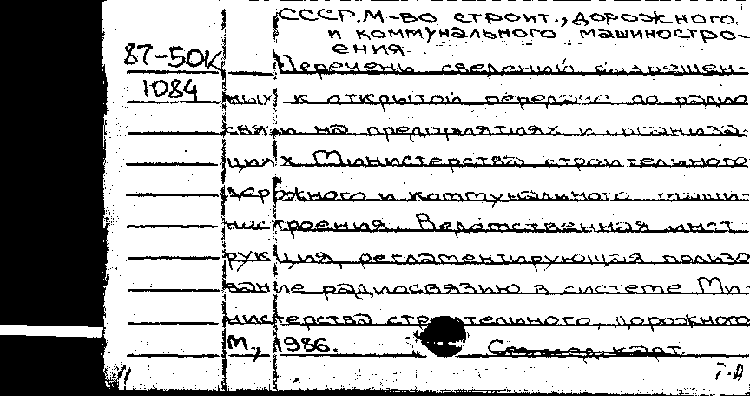 СССР. М-во строит., дорожного
и коммунального машиностро-
ения.
87-50К Перечень сведений разрешен-
1084 ных к открытой передаче по радио
связи на предприятиях и организа-
циях Министерства строительного
дорожного и коммунального машин-
ностроения. Ведомственная инст
рукция, регламентирующая пользо
вание радиосвязию в системе Ми-
нистерства строительного, дорожного
М., 1986. См. след. карт.